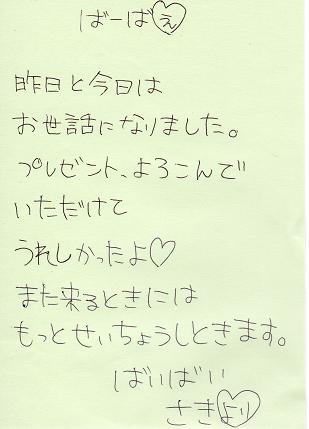 ばーばへ
昨日と今日は
お世話になりました。
プレゼント、よろこんで
いただけて
うれしかったよ♡
また来るときには
もっとせいちょうしときます。
ばいばい
さきより